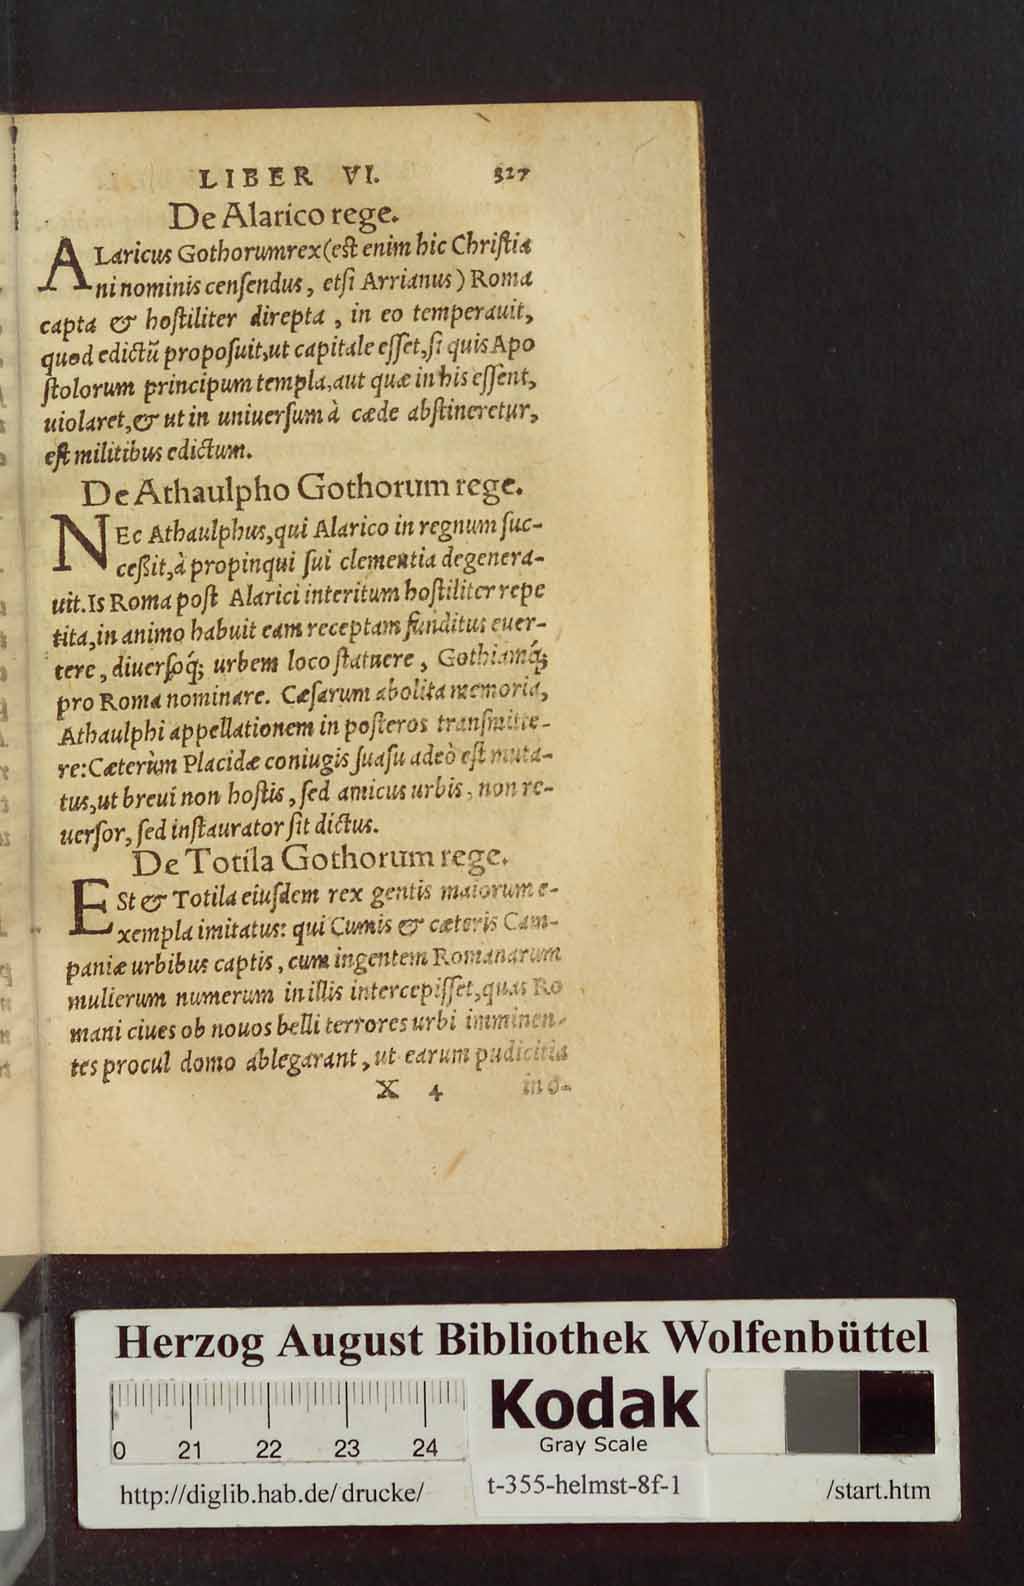 LIBER VI. 327
De Alarico rege.
ALaricus Gothorum rex (est enim hic Christia
ni nominis censendus, etsi Arrianus) Roma
capta & hostiliter direpta, in eo temperauit,
quod edictū proposuit, ut capitale esset, si quis Apo
stolorum principum templa, aut quæ in his essent,
uiolaret, & ut in uniuersum à cæde abstineretur,
est militibus edictum.
De Athaulpho Gothorum rege.
NEc Athaulphus, qui Alarico in regnum suc-
ceßit, à propinqui sui clementia degenera-
uit. Is Roma post Alarici interitum hostiliter repe
tita, in animo habuit eam receptam funditus euer-
tere, diuersoq́; urbem loco statuere, Gothiamq́;
pro Roma nominare. Cæsarum abolita memoria,
Athaulphi appellationem in posteros transmitte-
re: Cæterùm Placidæ coniugis suasu adeò est muta-
tus, ut breui non hostis, sed amicus urbis, non re-
uersor, sed instaurator sit dictus.
De Totila Gothorum rege.
ESt & Totila eiusdem rex gentis maiorum e-
xempla imitatus: qui Cumis & cæteris Cam-
paniæ urbibus captis, cum ingentem Romanarum
mulierum numerum in illis intercepisset, quas Ro
mani ciues ob nouos belli terrores urbi imminen-
tes procul domo ablegarant, ut earum pudicitia
X 4 in o-
Herzog August Bibliothek Wolfenbüttel
0 21 22 23 24
Kodak
Gray Scale
http://diglib.hab.de/ drucke/ t-355-helmst-8f-1 /start.htm